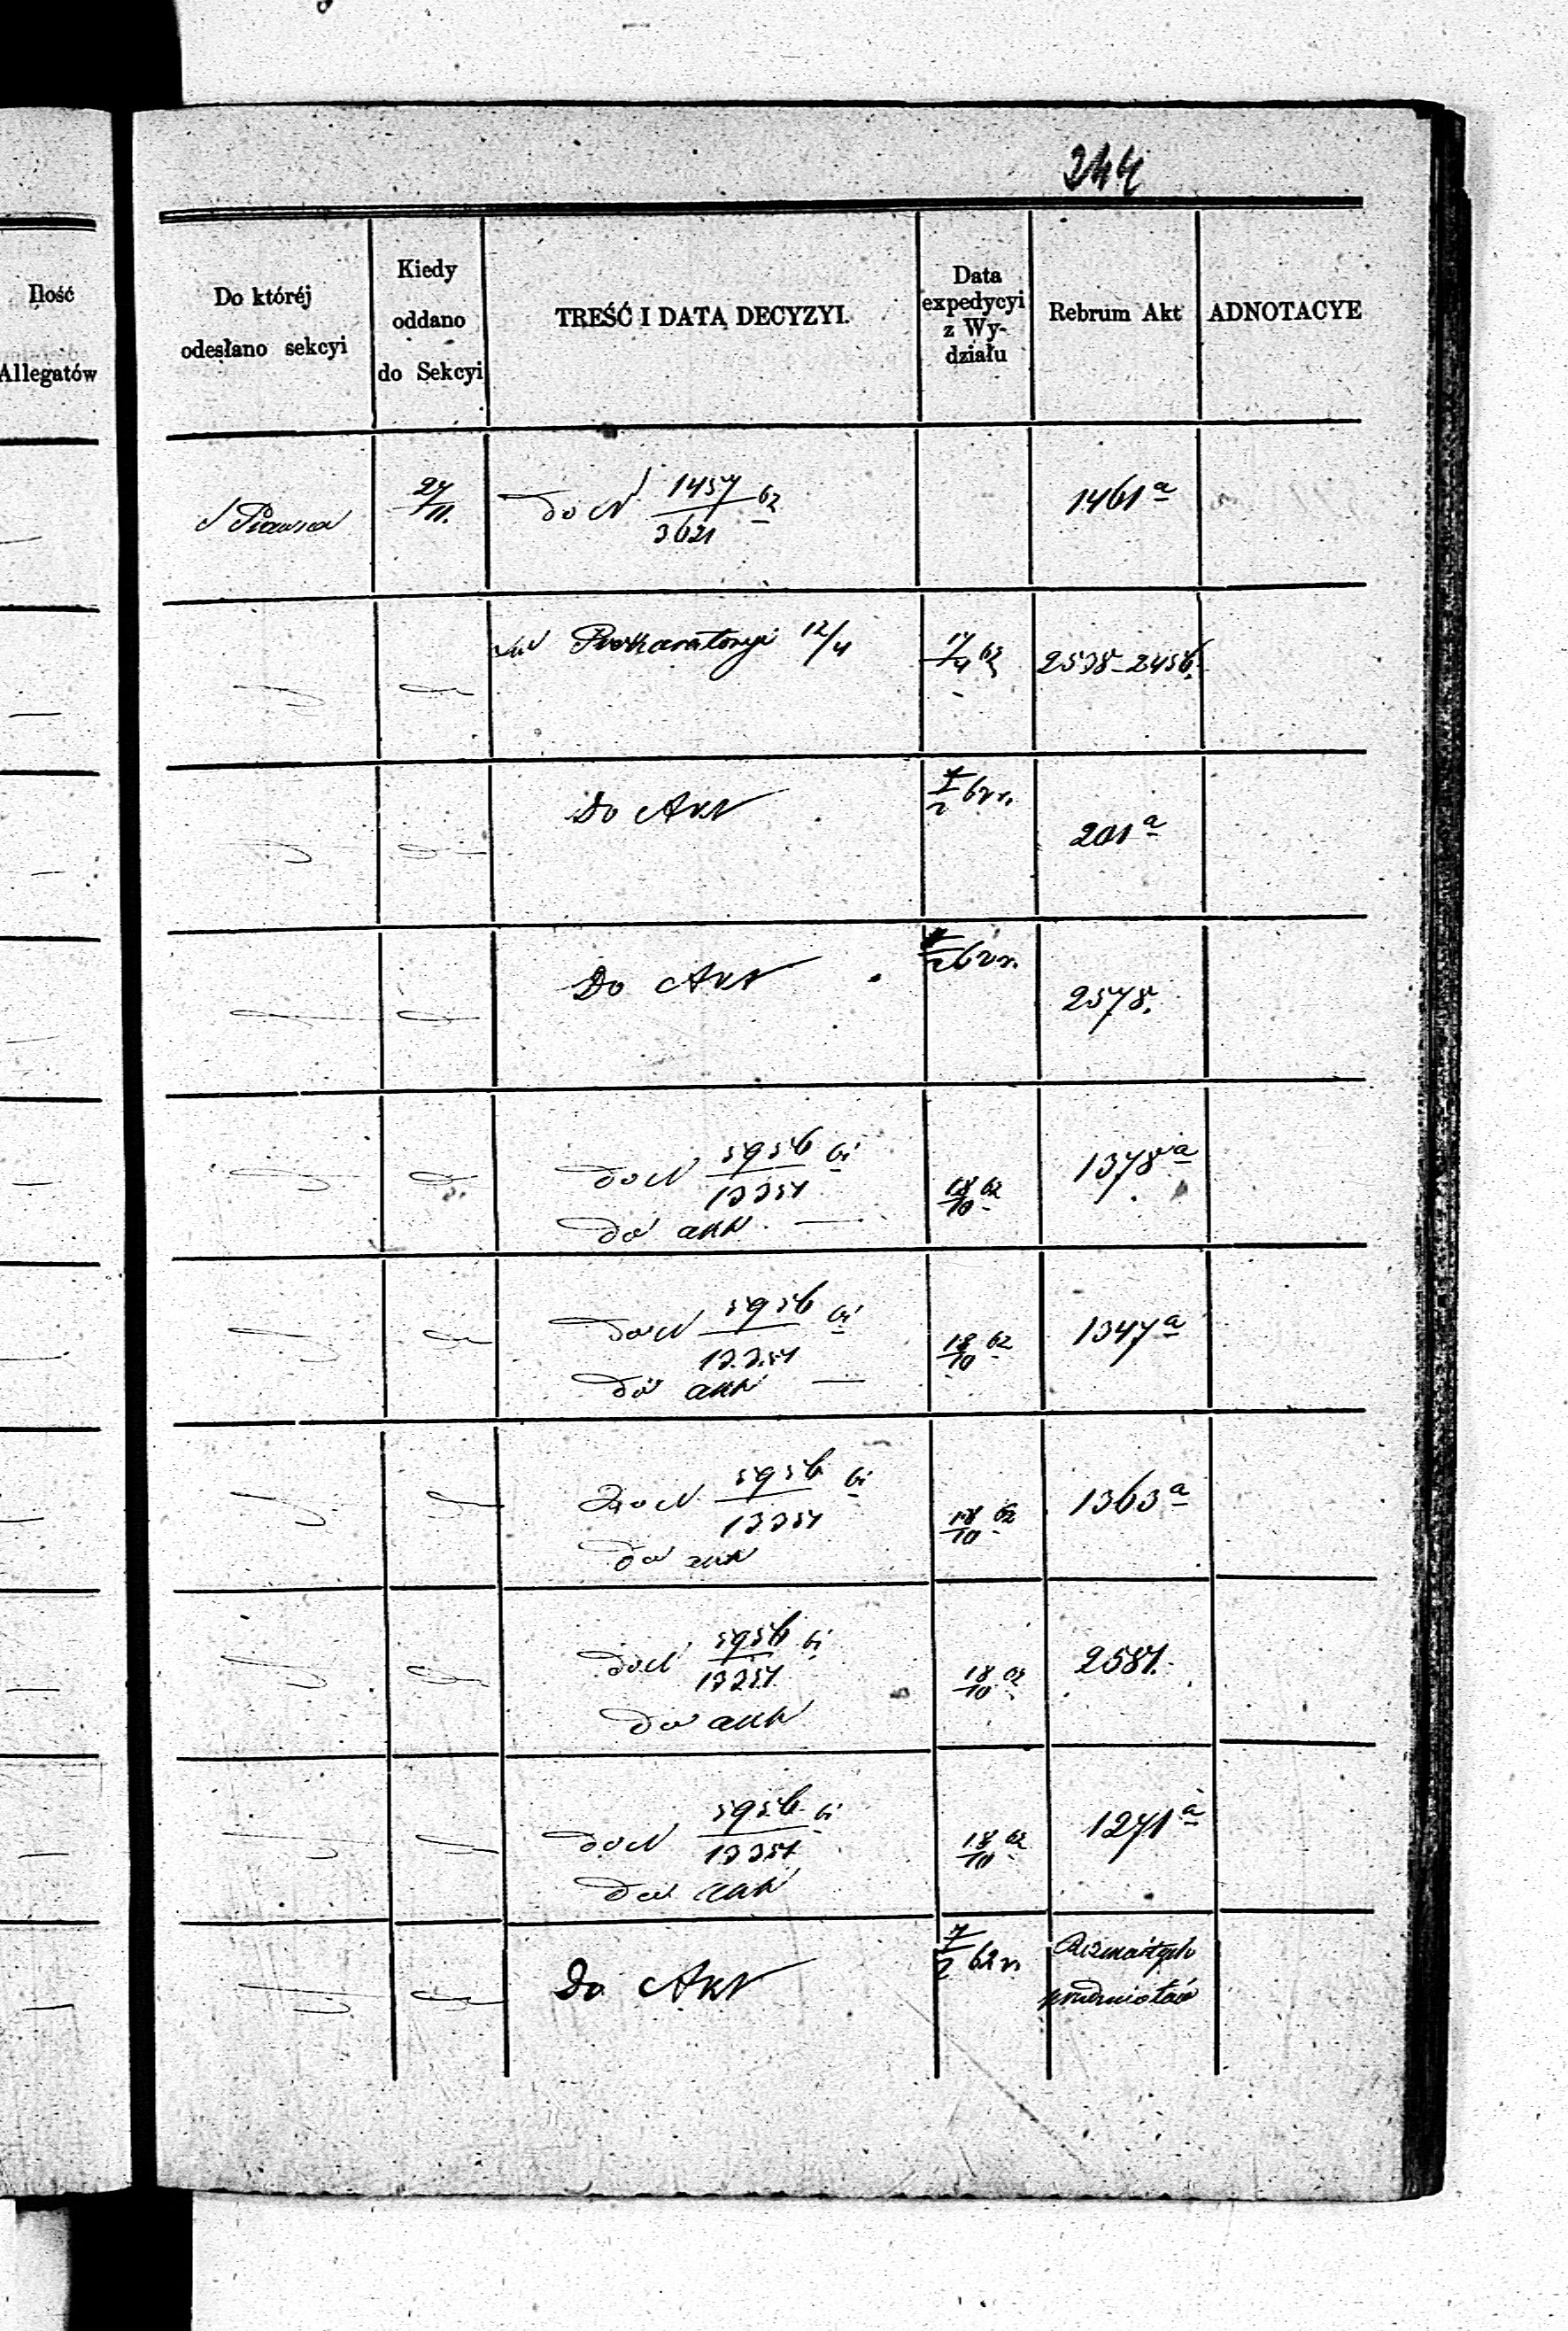 244
Ilość
Allegatów
Do któréj
odesłano sekcyi
Kiedy
oddano
do Sekcyi
TREŚĆ I DATA DECYZYI.
Data
expedycyi
z Wy-
działu
Rebrum Akt
ADNOTACYE
27/11.
do N 1457/3621 62
1461a
Prokuratoryi 12/4
17/4 62
2538-2456.
Do Akt
7/2 62 r.
201a
Do Akt
7/2 62 r.
2578.
do N 5956/13351 61
do akt —
18/10 62
1378a
do N 5956/13351 61
do akt —
18/10 62
1347a
do N 5956/13351 61
do akt
18/10 62
1363a
do N 5956/13351 61
do akt
18/10 62
2581.
do N 5956/13351 61
do akt
18/10 62
1271a
Do Akt
7/2 62 r.
Rozmaitych
przedmiotów